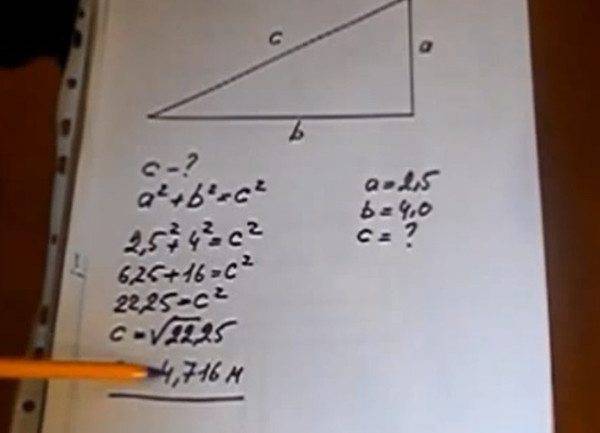 c
a
b
c - ?
a² + b² = c²
2,5² + 4² = c²
6,25 + 16 = c²
22,25 = c²
c = √22,25
4,716 м
a = 2,5
b = 4,0
c = ?